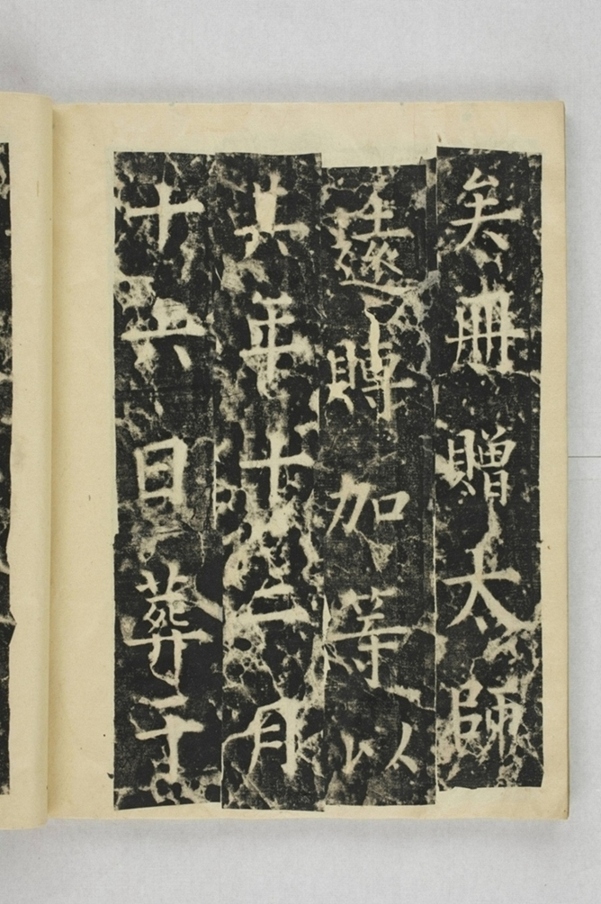 矣冊贈太師
賻加等以
其年十二月
十六日葬于